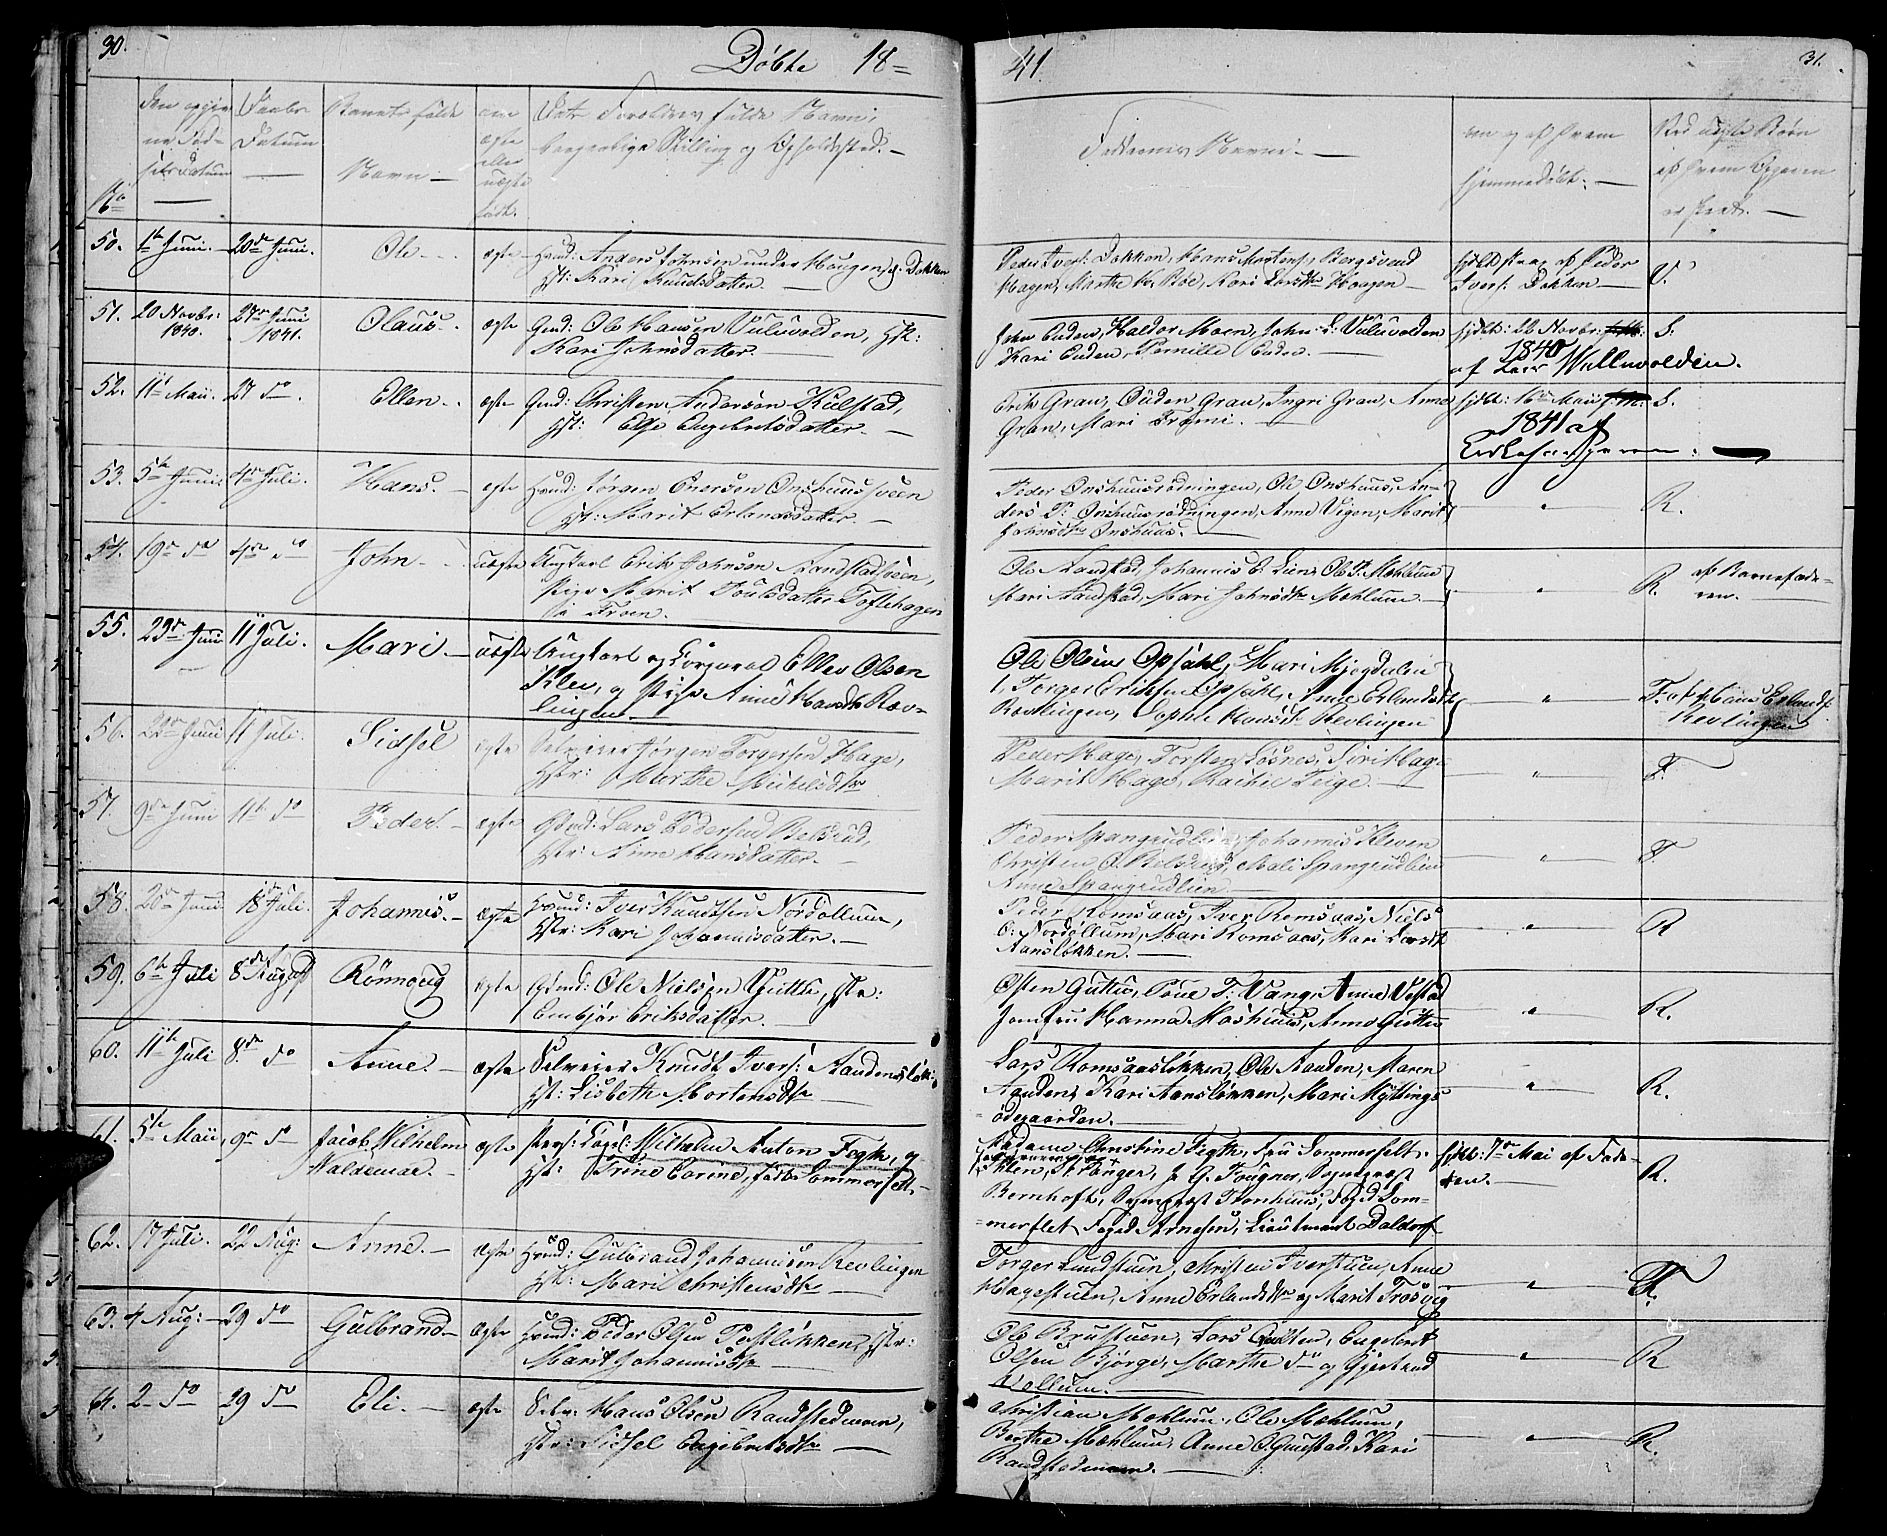 30.
Döbte 18=
41.
31.
No
Barnets fulde
Navn.
ægte
eller
uægte
født.
Forældres fulde Navn,
borgerlige Stilling og Opholdssted.
Faddernes Navne.
om og af hvem
hjemmedøbt.
Ved uægte Børn
af hvem Opgaven
er skeet.
50. 1ste Juni. 20de Juni. Ole ægte Huusmd: Anders Johnsen under Haugen g: Dokken
Hst: Kari Knudsdatter.
Peder Ivers: Dokken, Hans Mortens: Bergsvend
Hagen, Marthe Boe, Kari Larsdtr Haagen
hjdbt strax af Peder
Ivers: Dokken
V.
51. 20 Novbr: 1840. 27de Juni 1841. Olaus. ægte Gmd: Ole Hansen Vulluvolden, Hst:
Kari Johnsdatter.
John Enden, Haldor Moen, John L: Vuluvolden
Kari Enden, Pernille Enden.
hjdbt: 22 Novbr: S.
1840
af Lars Wulluvolden.
52. 11te Mai. 27 do. Ellen ægte Gmd: Christen Andersen Kulstad,
Hst: Else Engebretsdatter.
Erik Gran, Ouden Gran, Ingri Gran, Anne
Gran, Mari Frömi.
hjdbt: 16de Mai S.
1841 af
53. 5te Juni 4de Juli. Hans. ægte Huusmd: Jörgen Enersen Onshuussveen
Hst: Marit Erlandsdatter.
Peder Onshuusrödningen, Ole Onshuus, An-
ders P: Onshuusrödningen, Anne Vigen, Marit
Johnsdtr Onshuus.
" R.
54. 19de do 4de do John uægte Ungkarl Erik Johnsen Sandstadsveen,
Pige Marit Poulsdatter Toftehagen
i Froen.
Ole Sandstad Johannis E Lien, Ole P. Mæhlum
Mari Sandstad, Mari Johnsdtr Mæhlum
" R. af Barnefade-
ren.
55. 23de Juni 11 Juli. Mari. uægte Ungkarl og Corporal Ellev Olsen
Klev, og Pige Anne Hansdtr Rev-
lingen
Ole Olsen Opsahl, Mari Mjogdalen
Torger Eriksen Opsahl, Anne Erlandsdtr
Revlingen, Sophie Hansdt: Revlingen
" F. af Hans Erlands:
Revlingen
56. 22de Juni 11 Juli. Sidsel ægte Selveier Jörgen Torgersen Hage,
Hstr: Marthe Mikelsdtr
Peder Hage, Torsten Losnes, Siri Hage
Marit Hage, Rachel Teige.
" F.
57. 9de Juni 11te do Peder. ægte Gmd: Lars Pedersen Belsrud,
Hstr: Anne Hansdatter.
Peder Spangrudlien, Johannis Kleven
Christen O. Belsrud, Mali Spangrudlien
Anne Spangrudlien
" F
58. 20de Juni 18de Juli. Johannis. ægte Huusmd: Iver Knudsen Nordöllum,
Hstr: Kari Johannisdatter.
Peder Romsaas, Iver Romsaas, Niels
O: Nordöllum, Mari Romsaas, Kari Larsdtr
Aanslökken.
" R
59. 6te Juli 8de August Rönnoug ægte Gmd: Ole Nielsen Guttu, Hstr:
Embjör Eriksdatter.
Osten Guttu, Poue T: Vang, Anne Vestad
Jomfru Hanna Moshuus, Anne Guttu
" R.
60. 11te Juli 8de do Anne. ægte Selveier Knudt Ivers: Aandenslök:
Hst: Lisbeth Mortensdtr
Lars Romsaaslökken, Ole Aanden, Maren
Aanden, Kari Aanslökken, Mari Myttings
ödegaarden.
" R.
61. 5te Mai, 9de do Jacob Wilhelm
Waldemar. ægte Pers: Capel: Wilhelm Anton Fegth, og
Hst: Trine Corine, født Sommerfelt.
Madame Christine Fegth, Fru Sommerfelt.
J. G. Fougner, Sogneprest
Bernhoft, Sogneprest Stenhuus, Foged Som-
merfelt Foged Arnesen, Lieutnant Daldorf
hjdbt: 7de Mai af Fade-
ren.
R.
62. 17 Juli. 22 Aug: Anne. ægte Huusmd: Gulbrand Johannisen Revlingen
Hst: Marit Christensdtr
Torger Lundstuen, Christen Iverstuen, Anne
Hagestuen, Anne Erlandsdtr og Marit Trosvig
" F.
63. 4 Aug: 29 do Gulbrand ægte Huusmd: Peder Olsen Postlökken, Hstr:
Marit Johannisdtr
Ole Brustuen, Lars Quilten, Engebret
Olsen Bjørge, Marthe do og Gjertrud
Vollum.
" R
64. 2 do 29 do Eli. ægte Selv: Hans Olsen Randstedmoen,
Hstr: Sidsel Engebretsdtr
Christian Mæhlum, Ole Mæhlum,
Berthe Mæhlum, Anne Ofgaustad, Kari
Randstedmoen.
" R.